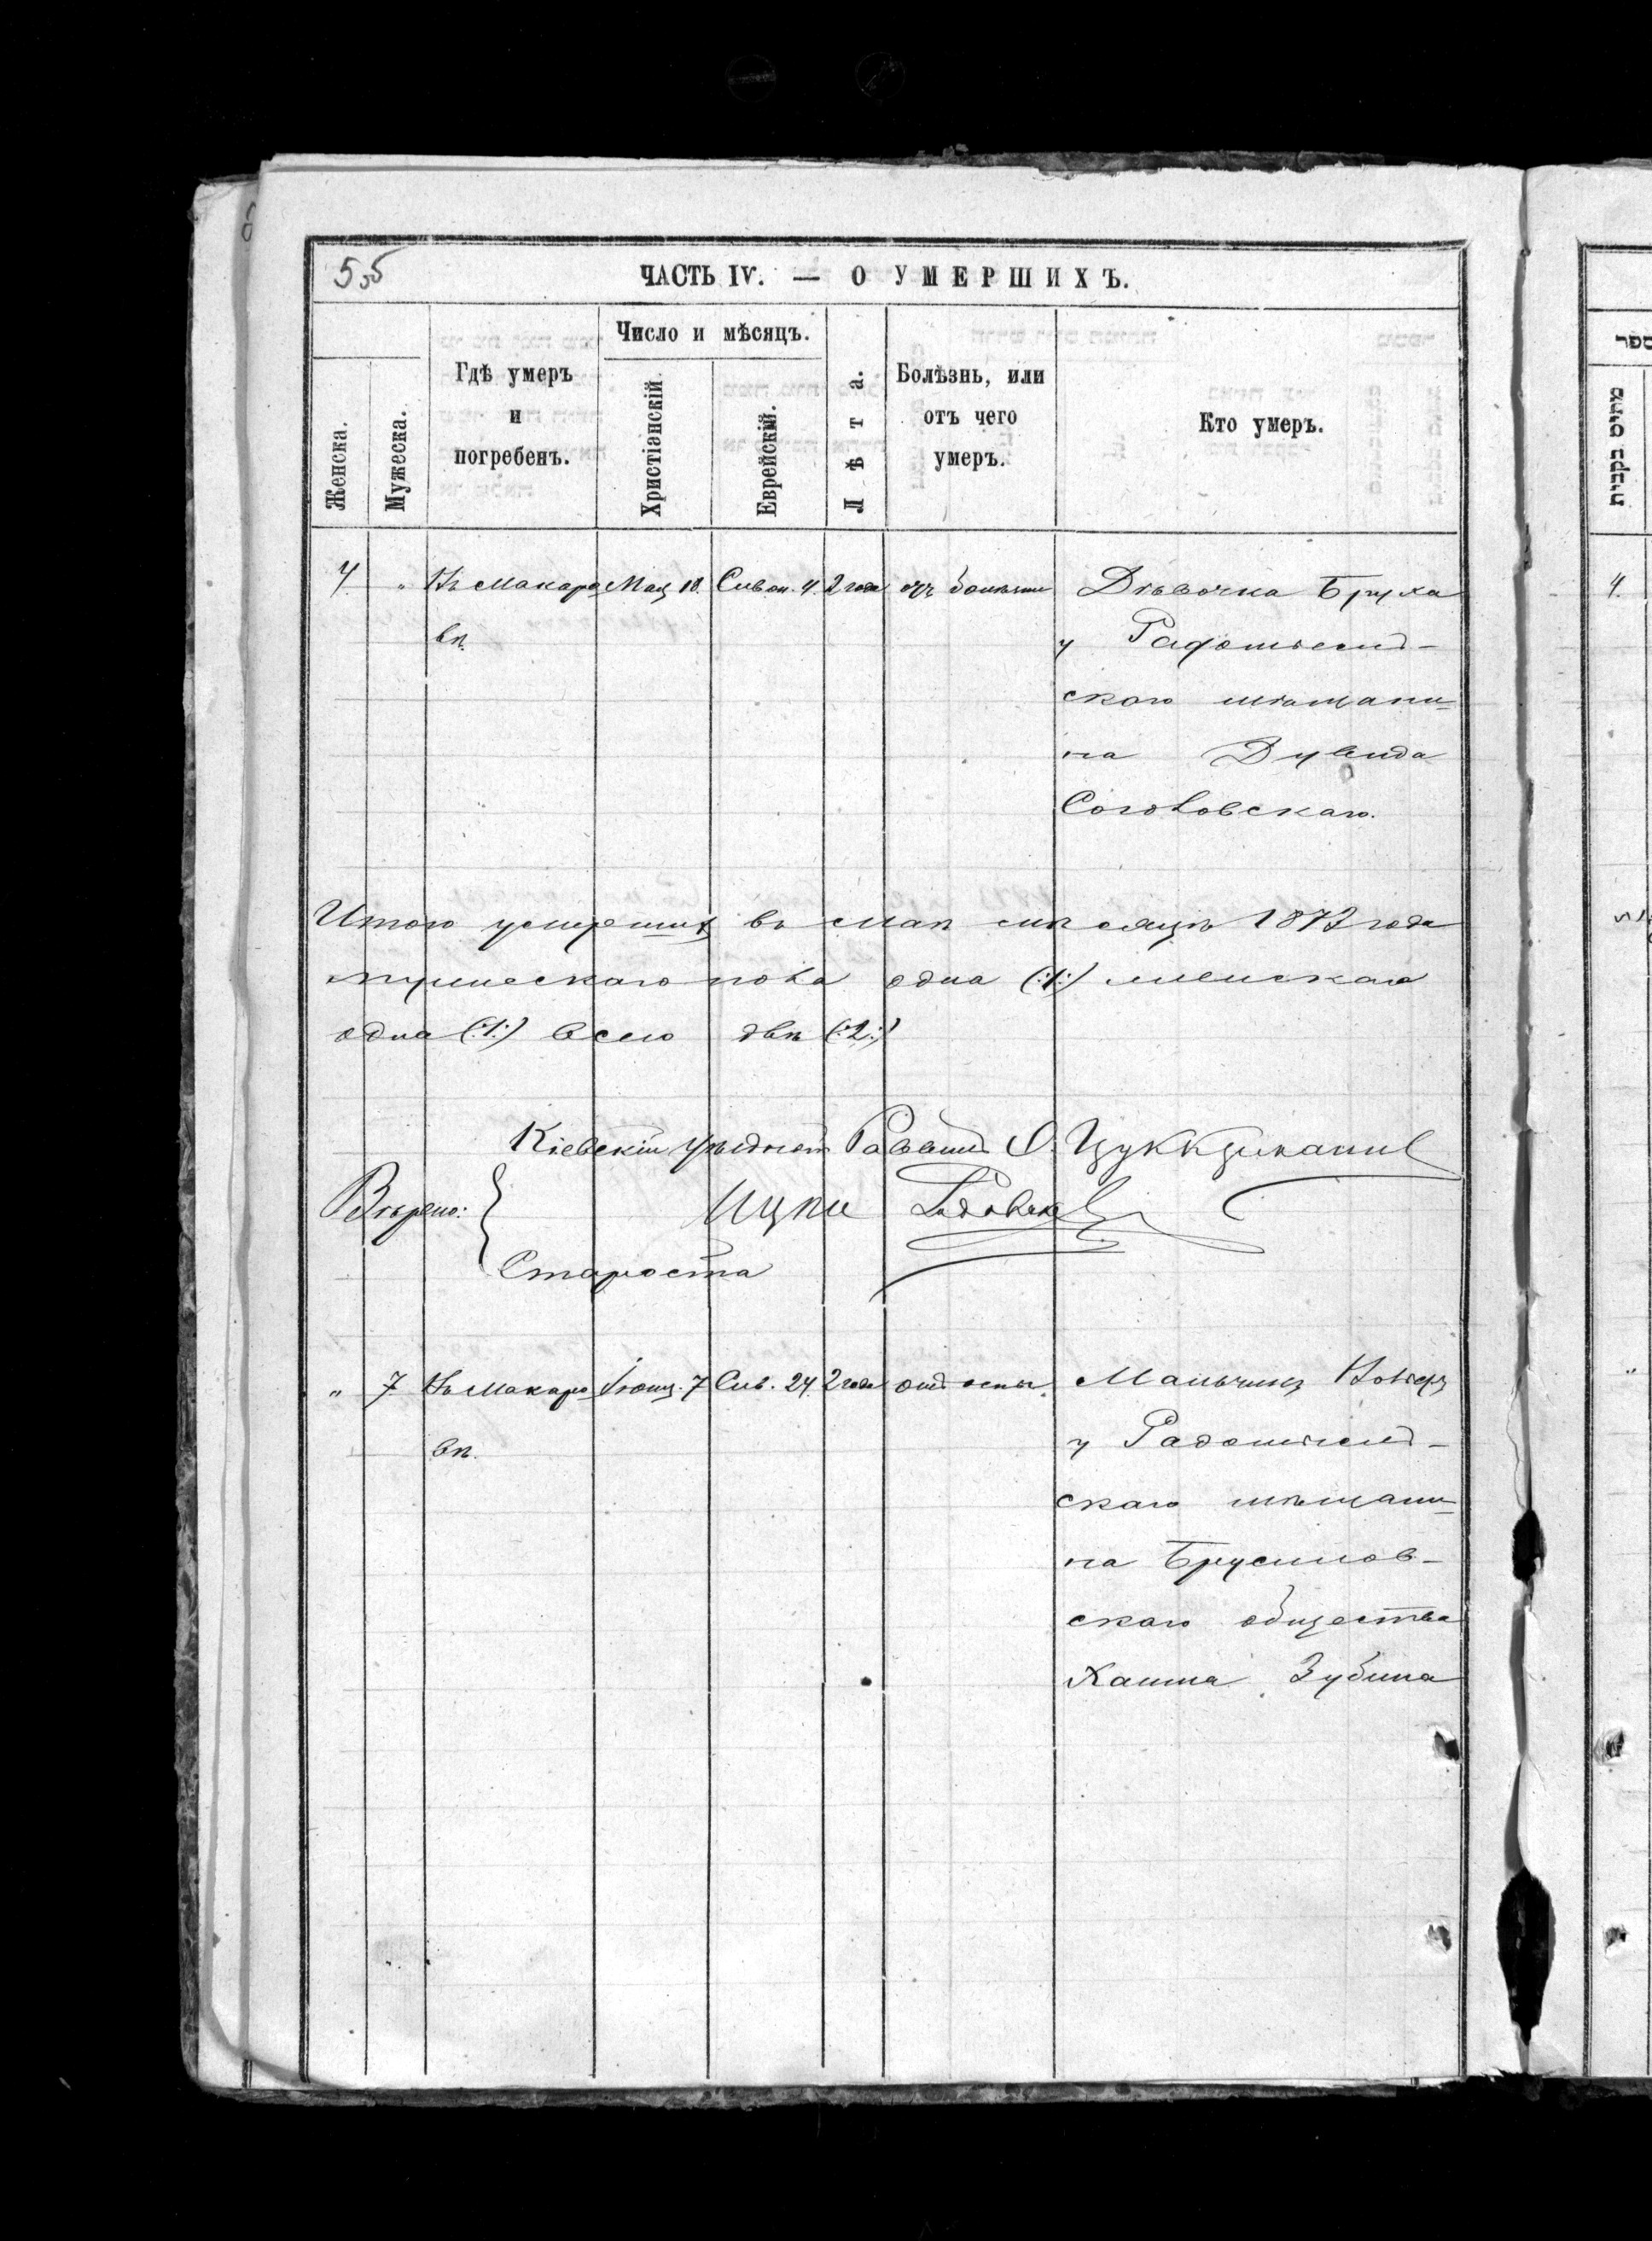 55
ЧАСТЬ IV. — О УМЕРШИХЪ.
Женска.
Мужеска.
Гдѣ умеръ и погребенъ.
Число и мѣсяцъ.
Христіанскій.
Еврейскій.
Лѣта.
Болѣзнь, или отъ чего умеръ.
Кто умеръ.
4 " Въ Макаро Мая 18. Сивон. 4. 2 года отъ Дѣвочка Бруха
вѣ. у Радомысл-
скаго мѣщани=
на Дувида
Итого умершихъ въ маѣ мѣсяцѣ 1873 года
мужескаго пола одна (:1:) женскаго
одна (:1:) всего двѣ (:2:)
Кіевскій уѣздный Раввинъ
Вѣрно:
Староста
" 7 Въ Макаро Іюня. 7 Сив. 24 2 года отъ оспы. Мальчикъ
вѣ. у Радомысл-
скаго мѣщани=
на Брусилов-
скаго общества
Хаима Зубина
ספר
מתים בקבית
4.
"